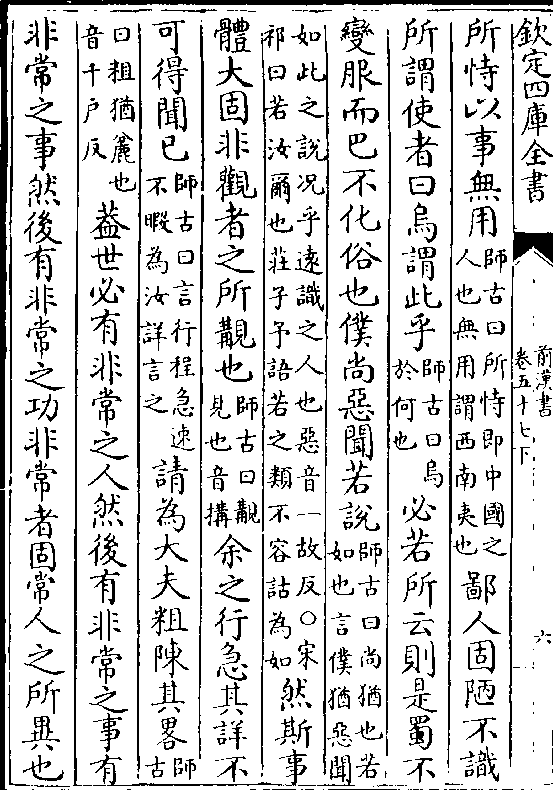 欽定四庫全書
前漢書
卷五十七下
六
所恃以事無用師古曰所恃即中國之人也無用謂西南夷也鄙人固陋不識
所謂使者曰烏謂此乎師古曰烏於何也必若所云則是蜀不
變服而巴不化俗也僕尚惡聞若說師古曰尚猶也若如也言僕猶惡聞
如此之說况乎逺識之人也惡音一故反○宋祁曰若汝爾也莊子予語若之類不容詁為如然斯事
體大固非觀者之所覯也師古曰覯見也音搆余之行急其詳不
可得聞已師古曰言行程急速不暇為汝詳言之請為大夫粗陳其畧師古
曰粗猶麄也音千户反葢世必有非常之人然後有非常之事有
非常之事然後有非常之功非常者固常人之所異也